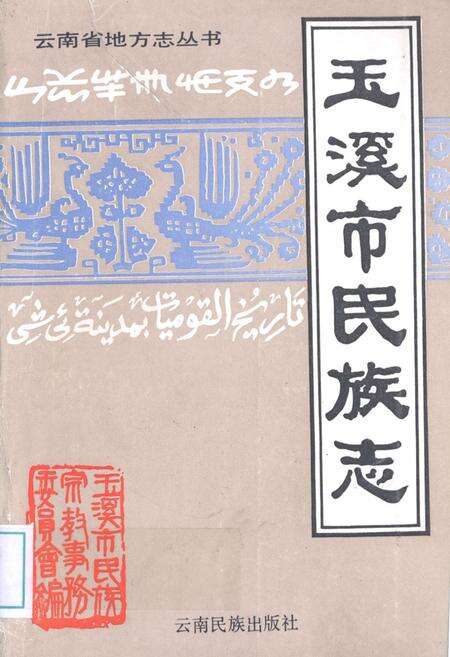 云南省地方志丛书
玉溪市民族志
تاريخ القوميات بمدينة يُئ شي
玉溪市民族
宗教事务
委员会编
云南民族出版社